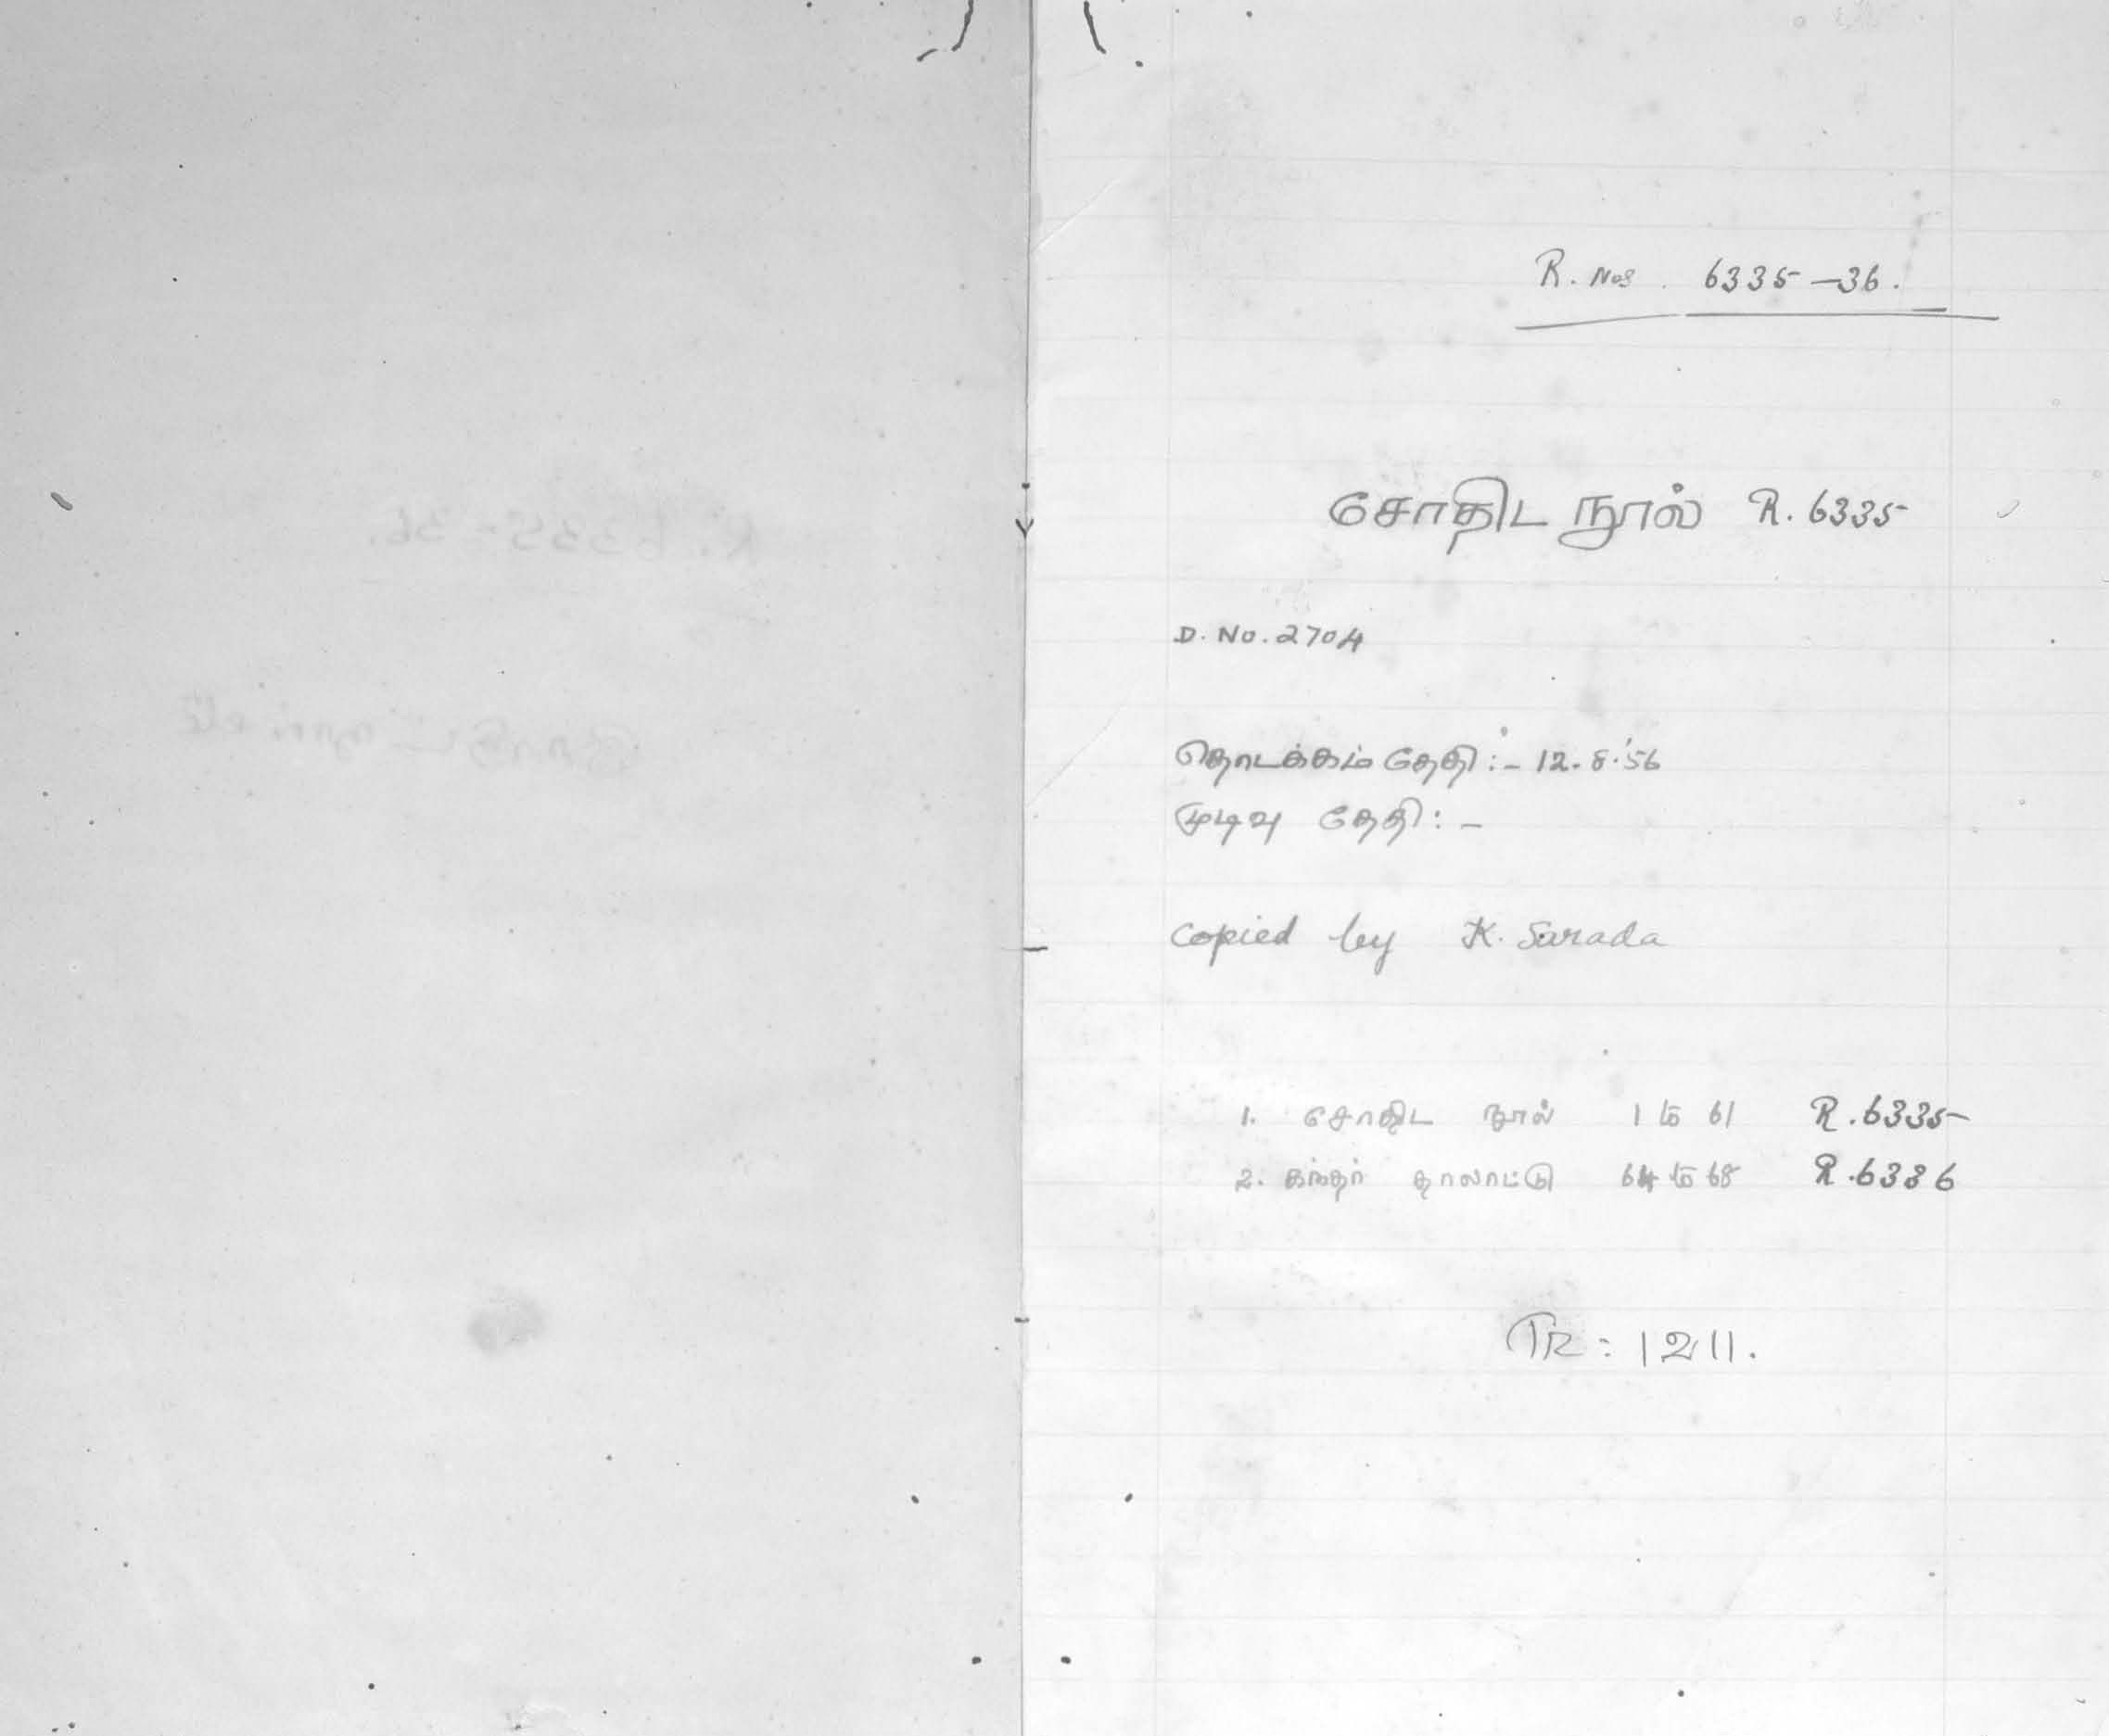 R. Nos. 6335-36.
சோதிட நூல் R. 6335
D. No. 2704
தொடக்கம் தேதி :- 12.8.'56
முடிவு தேதி :-
Copied by K. Sarada
1. சோதிட நூல் 1 to 61 R. 6335
2. கந்தர் தாலாட்டு 64 to 68 R. 6336
TR : 1211.